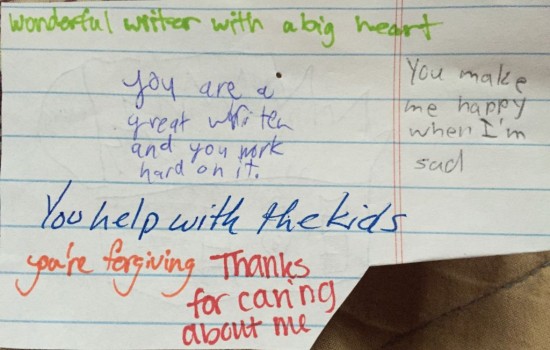 wonderful writer with a big heart
you are a
great writer
and you work
hard on it.
You make
me happy
when I'm
sad
You help with the kids
you're forgiving
Thanks
for caring
about me